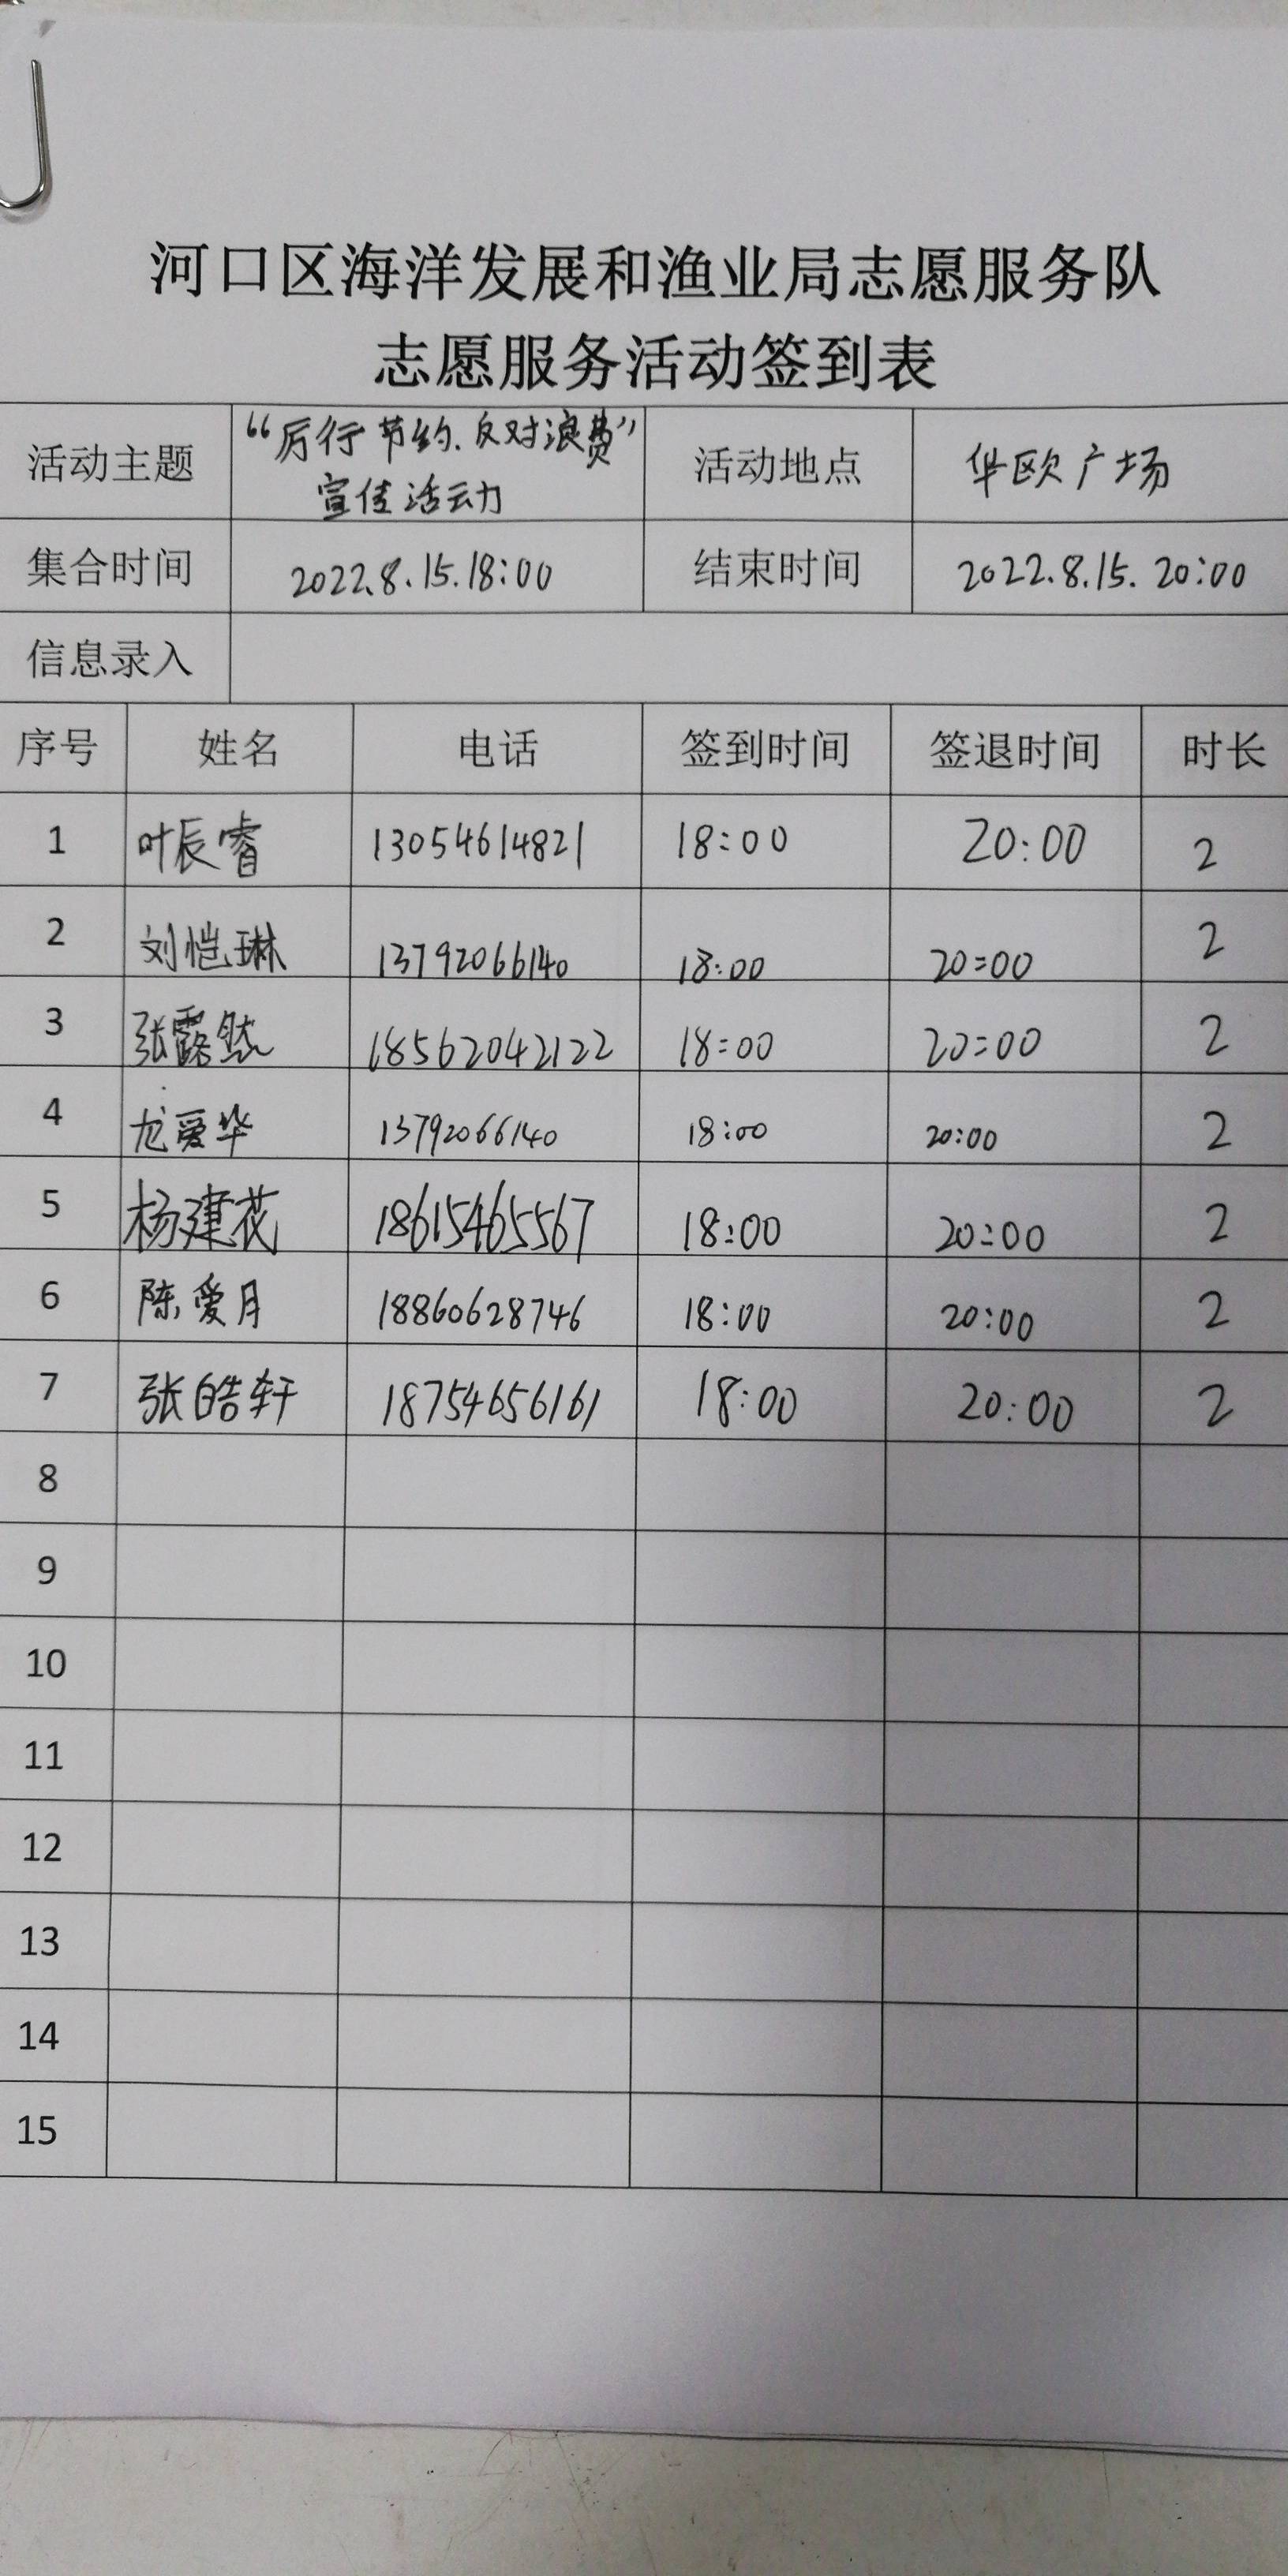 河口区海洋发展和渔业局志愿服务队
志愿服务活动签到表
活动主题 “厉行节约.反对浪费” 宣传活动 活动地点 华欧广场
集合时间 2022.8.15.18:00 结束时间 2022.8.15.20:00
信息录入
序号 姓名 电话 签到时间 签退时间 时长
1 叶辰睿 13054614821 18:00 20:00 2
2 刘恺琳 13792066140 18:00 20:00 2
3 张露然 18562042122 18:00 20:00 2
4 龙爱华 13792066140 18:00 20:00 2
5 杨建花 18615465567 18:00 20:00 2
6 陈爱月 18860628746 18:00 20:00 2
7 张皓轩 18754656161 18:00 20:00 2
8
9
10
11
12
13
14
15